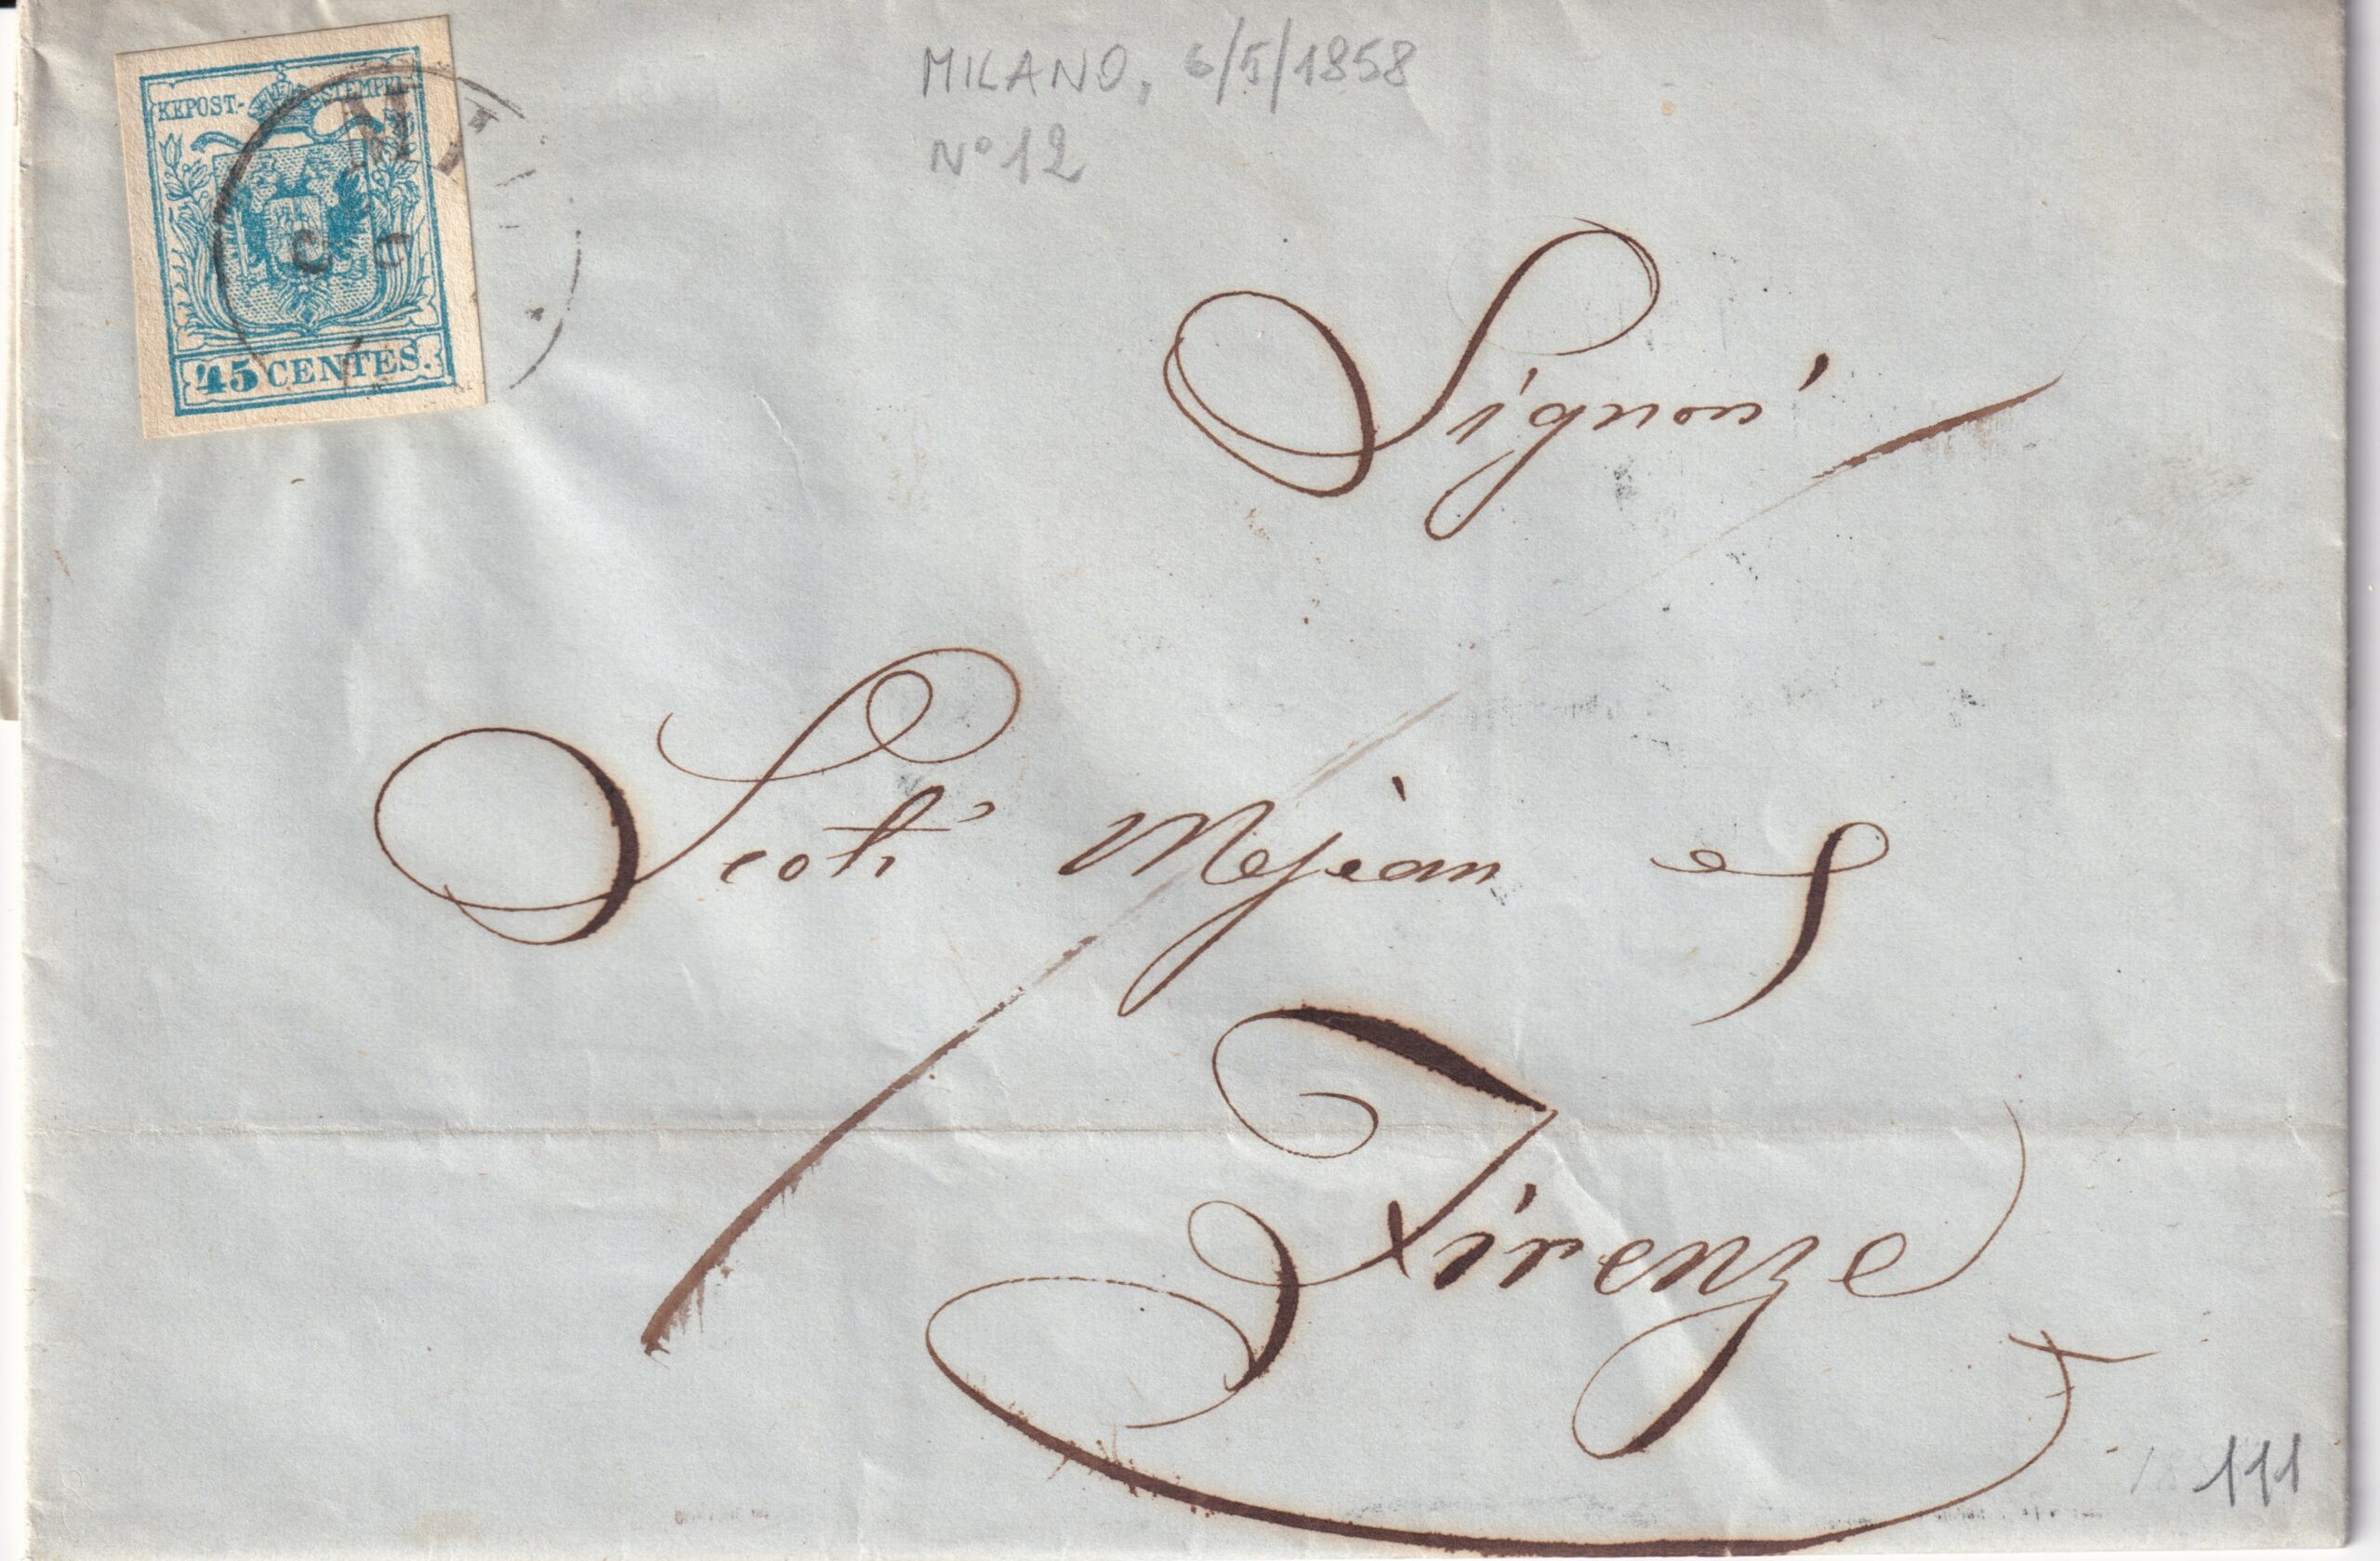 KKPOST-STEMPEL
45 CENTES.
MILANO, 6/5/1858
N° 12
Signori
Scoti Mejean e
Firenze
111